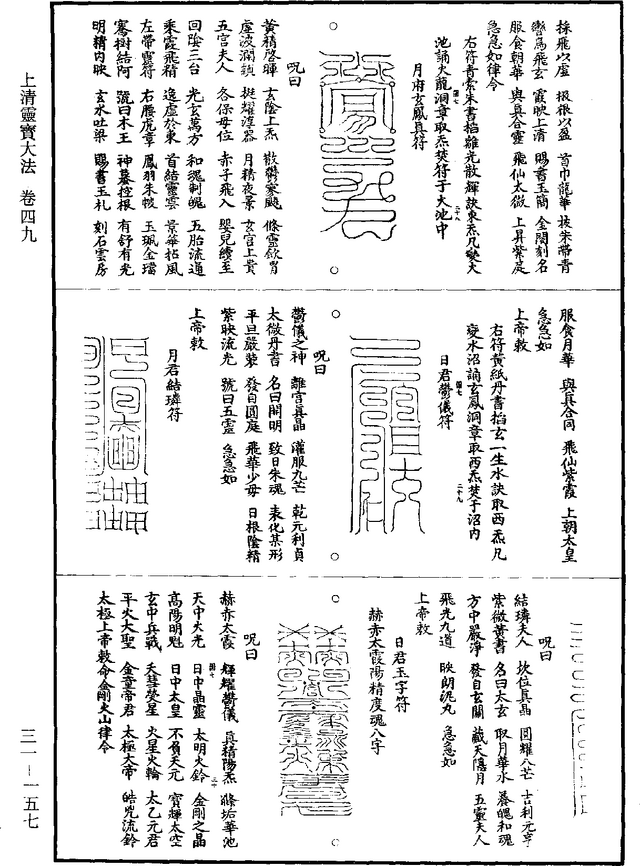 採飛以虛　扱根以盈　首巾龍華　披朱帶青
轡烏飛玄　霞映上清　賜書玉簡　金閣刻名
服食朝華　與真合靈　飛仙太微　上昇紫庭
急急如律令
右符青索朱書掐離光散輝訣東炁凡變火
池誦大龍洞章取炁焚符于火池中
月府玄鳳真符
呪曰
黃精啓暉　玄陰上炁　散鬱寒颷　條靈飲胃
虛波瀾鎮　挺耀淳器　月精夜景　玄宮上貴
五宮夫人　各保母位　赤子飛入　嬰兒續至
回陰三台　光玄萬方　和魂制魄　五胎流通
乘霞飛精　逸虛於東　首結靈雲　景華招風
左帶靈符　右腰虎章　鳳羽朱帔　玉珮金璫
騫樹結阿　號曰木王　神蟇控根　有舒有光
明精內映　玄水吐梁　賜書玉札　刻石雲房
服食月華　與真合同　飛仙紫霞　上朝太皇
急急如
上帝敕
右符黃紙丹書掐玄一生水訣取西炁凡
變水沼誦玄鳳洞章取西炁焚于沼內
日君鬱儀符
呪曰
鬱儀之神　離宮真晶　濯服九芒　乾元利貞
太微丹書　名曰開明　致日朱魂　表化某形
平旦嚴裝　發自圓庭　飛華少母　日根陰精
紫映流光　號曰五靈　急急如
上帝敕
月君結璘符
呪曰
結璘夫人　坎位真晶　圓耀八芒　吉利元亨
紫微黃書　名曰太玄　取月華水　養魄和魂
方中嚴淨　發自玄關　藏天隱月　五靈夫人
飛光九道　映朗泥丸　急急如
上帝敕
日君玉字符
赫赤太霞陽精度魂八字
呪曰
赫赤太霞　輝耀鬱儀　真精陽炁　滌垢華池
天中大光　日中晶靈　太明火鈴　金剛之晶
高陽明魁　日中太皇　不負天元　寶輝太空
玄中兵戰　天彗熒星　火星火輪　太乙元君
平火大聖　金童帝君　太極大帝　皓兕流鈴
太極上帝敕命金剛火山律令
上清靈寶大法　卷四九
三一－一五七